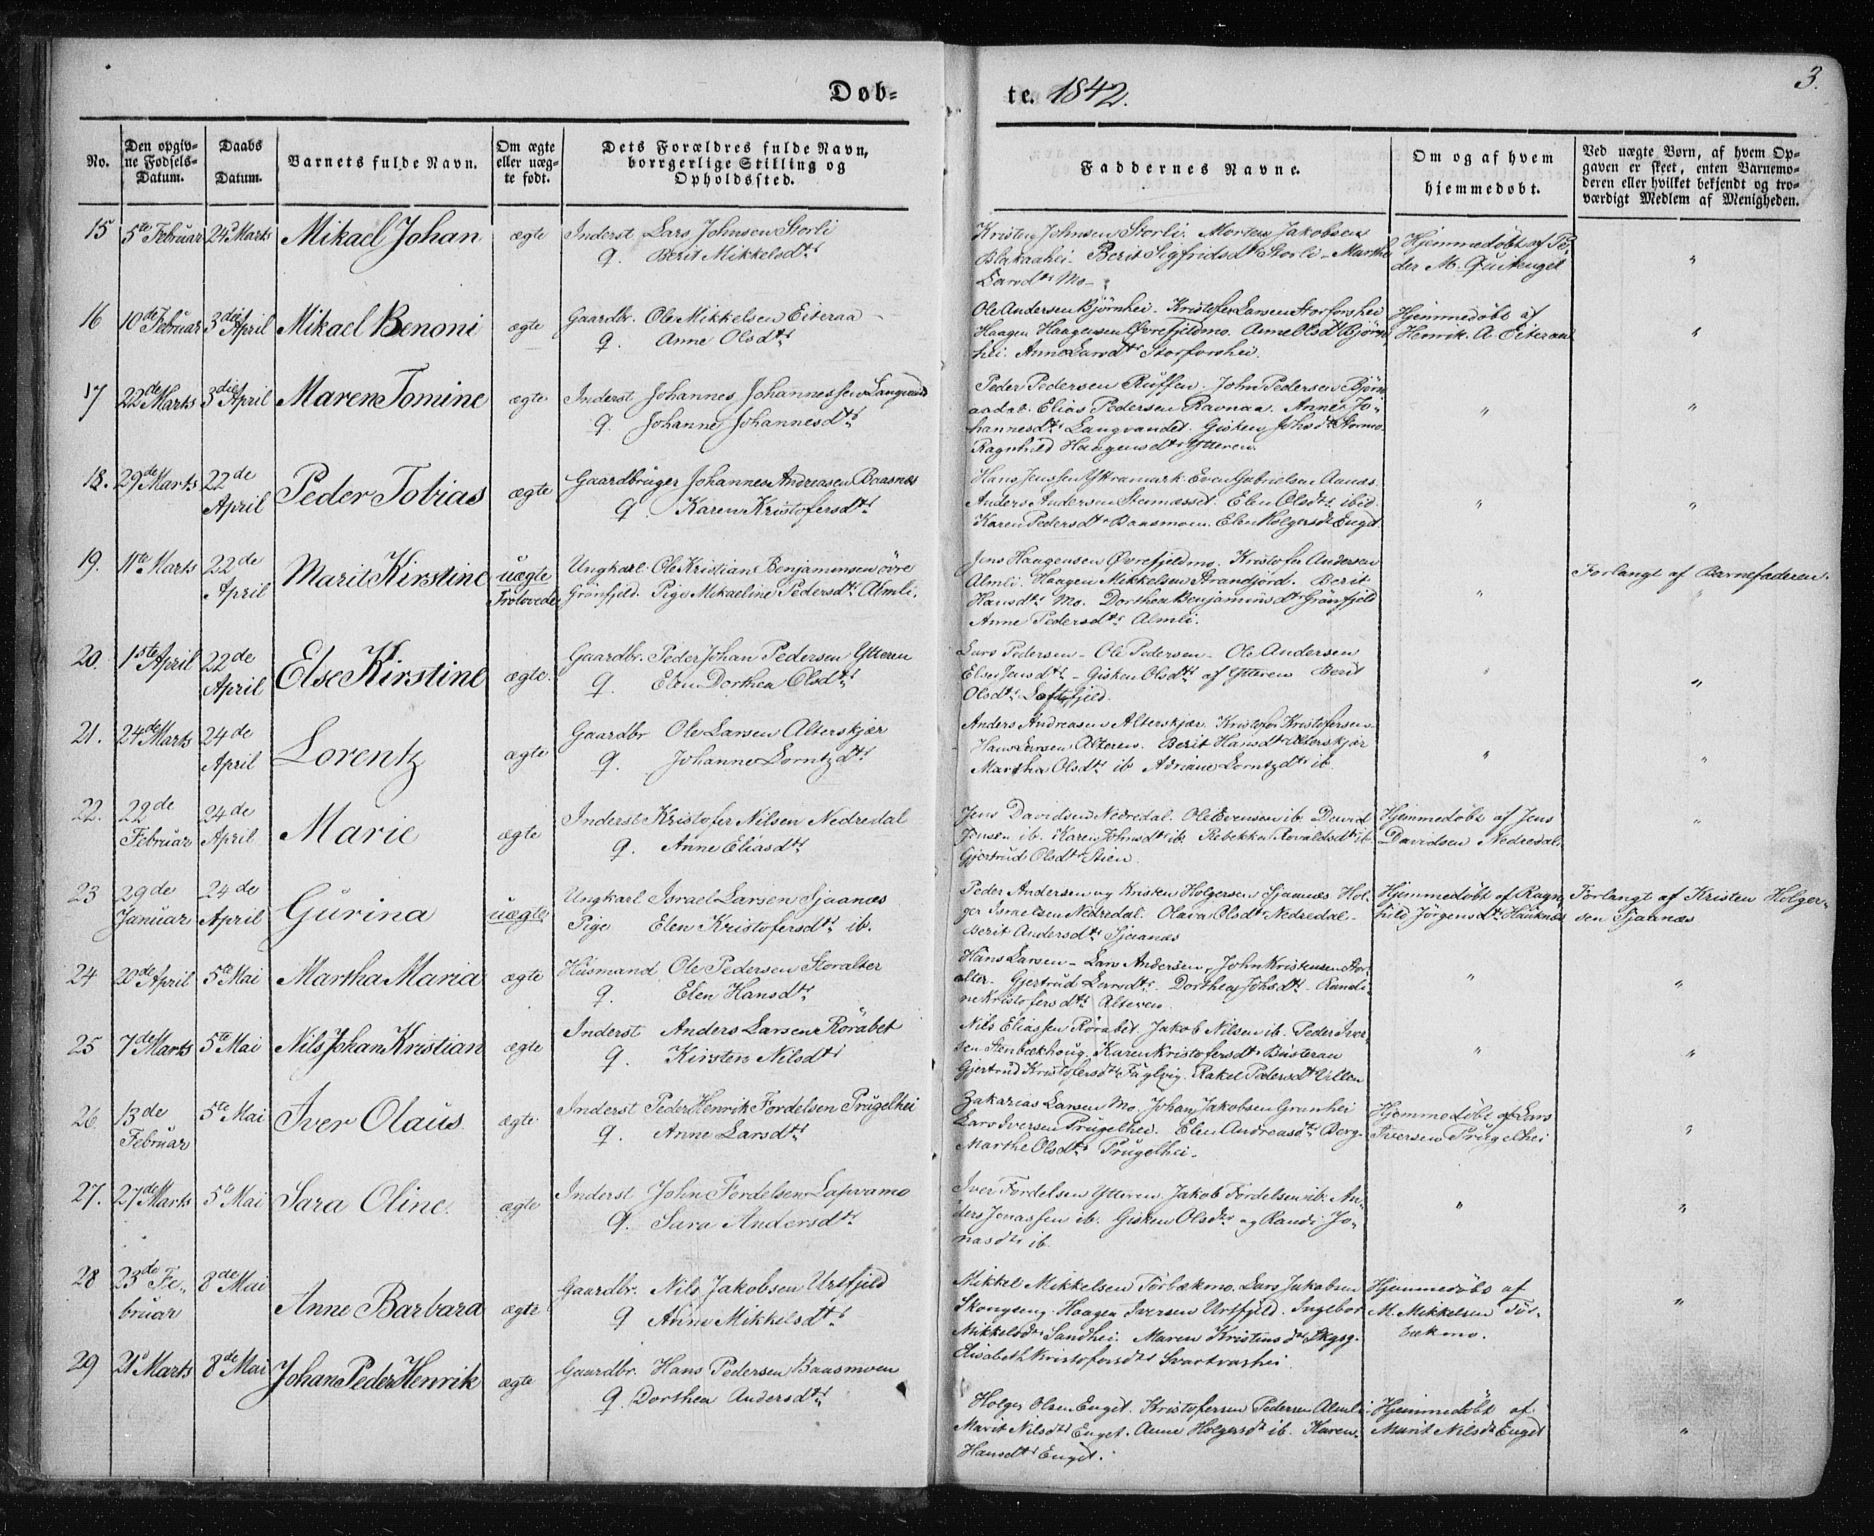 Døb-
te. 1842.
3.
No.
Den opgiv-
ne Fødsels-
Datum.
Daabs
Datum.
Barnets fulde Navn.
Om ægte
eller uæg-
te født.
Dets Forældres fulde Navn,
borrgerlige Stilling og
Opholdssted.
Faddernes Navne.
Om og af hvem
hjemmedøbt.
Ved uægte Børn, af hvem Op-
gaven er skeet, enten Barnemo-
deren eller hvilket bekjendt og tro-
værdigt Medlem af Menigheden.
15 5te Februar 24d Marts Mikael Johan ægte Inderst Lars Johnsen Storli
q. Berit Mikkelsdtr
Kristen Johnsen Storli. Morten Jakobsen
Blakaahei. Berit Sigfridsdtr Storli - Marthe
Larsdtr Mo -
Hjemmedøbt af Pe-
der M. Quitengel
"
16 10de Februar 3die April Mikael Benoni ægte Gaardbr. Ole Mikkelsen Eiteraa
q. Anne Olsdtr
Ole Andersen Bjørnhei. Kristofer Larsen Storforshei
Haagen Haagensen Øvrefjeldmo. Anne Olsdtr Bjørn-
hei. Anne Larsdtr Storforshei.
Hjemmedøbt af
Henrik. A. Eiteraa
"
17 22de Marts 3die April Maren Tomine ægte Inderst Johannes Johannessen Langvand
q. Johanne Johannesdtr
Peder Pedersen Ruffen. John Pedersen Bjørn-
aadal. Elias Pedersen Ravnaa. Anne Jo-
hannesdtr Langvandet. Gisken Johsdtr Stormo
Ragnhild Haagensdtr Ytteren.
" "
18. 29de Marts 22de
April Peder Tobias ægte Gaardbruger Johannes Andreasen Baasnæs
q. Karen Kristofersdtr
Hans Jenssen Yttramark. Even Gabrielsen Aanæs.
Anders Andersen Stennæsset. Elen Olsdtr ibid.
Karen Pedersdtr Baasmoen. Elen Holgersdtr Enget
" "
19. 11te Marts 22de
April Marit Kirstine uægte
Trolovede Ungkarl. Ole Kristian Benjaminsen övre
Grønfjeld. Pige Mikaeline Pedersdtr Almli.
Jens Haagensen Øvrefjeldmo. Kristofer Andersen
Almli. Haagen Mikkelsen Straneförd. Berit
Hansdtr Mo. Dorthea Benjaminsdtr Grönfjeld
Anne Pedersdtr Almli.
"
Forlangt af Barnefaderen.
20. 1ste April 22de
April Else Kirstine ægte. Gaardbr. Peder Johan Pedersen Ytteren
q. Elen Dorthea Olsdtr
Lars Pedersen - Ole Pedersen - Ole Andersen
Elsen Jensdtr - Gisken Olsdtr af Ytteren Berit
Olsdtr
" "
21. 24de Marts 24de
April Lorentz ægte Gaardbr Ole Larsen Alterskjær
q. Johanne Lorntzdtr
Anders Andreasen Alterskjær. Kristofer Kristofersen
Hans Larsen Alteren. Berit Hansdtr Alterskjær
Martha Olsdtr ib. Adriane Lerntzdtr ib.
" "
22. 22de
Februar 24de
April Marie ægte Inderst Kristofer Nilsen Nedredal
q. Anne Eliasdtr
Jens Davidsen Nedredal. Ole Evensen ib. David
Jensen ib. Karen Johnsdtr ib. Rebekka Ronaldsdtr ib.
Gjertrud Olsdtr Stien.
Hjemmedøbt af Jens
Davidsen Nedredal.
"
23 29de
Januar 24de
April Gurina uægte Ungkarl Israel Larsen Sjaanæs
Pige Elen Kristofersdtr ib.
Peder Andersen og Kristen Holgersen Sjaanæs Hol-
ger Israelsen Nedredal. Olava Olsdtr Nedredal.
Berit Andersdtr Sjaanæs
Hjemmedøbt af Ragn-
hild Jørgensdtr Hauknæs
Forlangt af Kristen Holger-
sen Sjaanæs
24 20de April 5te Mai Martha Maria ægte Husmand Ole Pedersen Storalter
q. Elen Hansdtr
Hans Larsen - Lars Andersen, John Kristensen Stor-
alter. Gjertrud Larsdtr. Dorthea Johsdtr. Randi-
ne Kristofersdtr Alteren.
" "
25 7de Marts 5te Mai Nils Johan Kristian ægte Inderst Anders Larsen Rörabet
q. Kirsten Nilsdtr
Nils Eliassen Rörabet. Jakob Nilsen ib. Peder Iver-
sen Stenbækhoug. Karen Kristofersdtr Busteran
Gjertrud Kristofersdtr Fuglvig. Rakel Pedersdtr Ulten
" "
26. 13de
Februar 5te Mai Iver Olaus. ægte Inderst Peder Henrik Fordelsen Prügelhei
q. Anne Larsdtr
Zakarias Larsen Mo. Johan Jakobsen Granhei
Lars Iversen Prügelhei. Elen Andreasdtr Berg-
Marthe Olsdtr Prügelhei.
Hjemmedøbt af Lars
Iversen Prügelhei
"
27. 27de Marts 5te Mai Sara Oline. ægte Inderst John Fordelsen Lapvamo
q. Sara Andersdtr
Iver Fordelsen Ytteren. Jakob Fordelsen ib. An-
ders Jonassen ib. Gisken Olsdtr og Randi Jo-
nasdtr ib.
" "
28 23de Fe-
bruar 8de Mai Anne Barbara ægte Gaardbr. Nils Jakobsen Urtfjeld
q Anne Mikkelsdtr
Mikkel Mikkelsen Törbækmo. Lars Jakobsen
Skongseng. Haagen Iversen Urtfjeld. Ingebor
Mikkelsdtr Sandhei. Maren Kristensdtr Skgsg.
Elisabeth Kristofersdtr Svartvashei.
Hjemmedøbt af
M. Mikkelsen Tör-
bækmo.
"
29 21d Marts 8de Mai Johan Peder Henrik ægte Gaardbr. Hans Pedersen Baasmoen
q. Dorthea Andersdtr
Holger Olsen Enget. Kristofersen Pedersen Almli.
Marit Nilsdtr Enget. Anne Holgersdtr ib. Karen
Hansdtr Enget.
Hjemmedøbt af
Marit Nilsdtr Enget
"